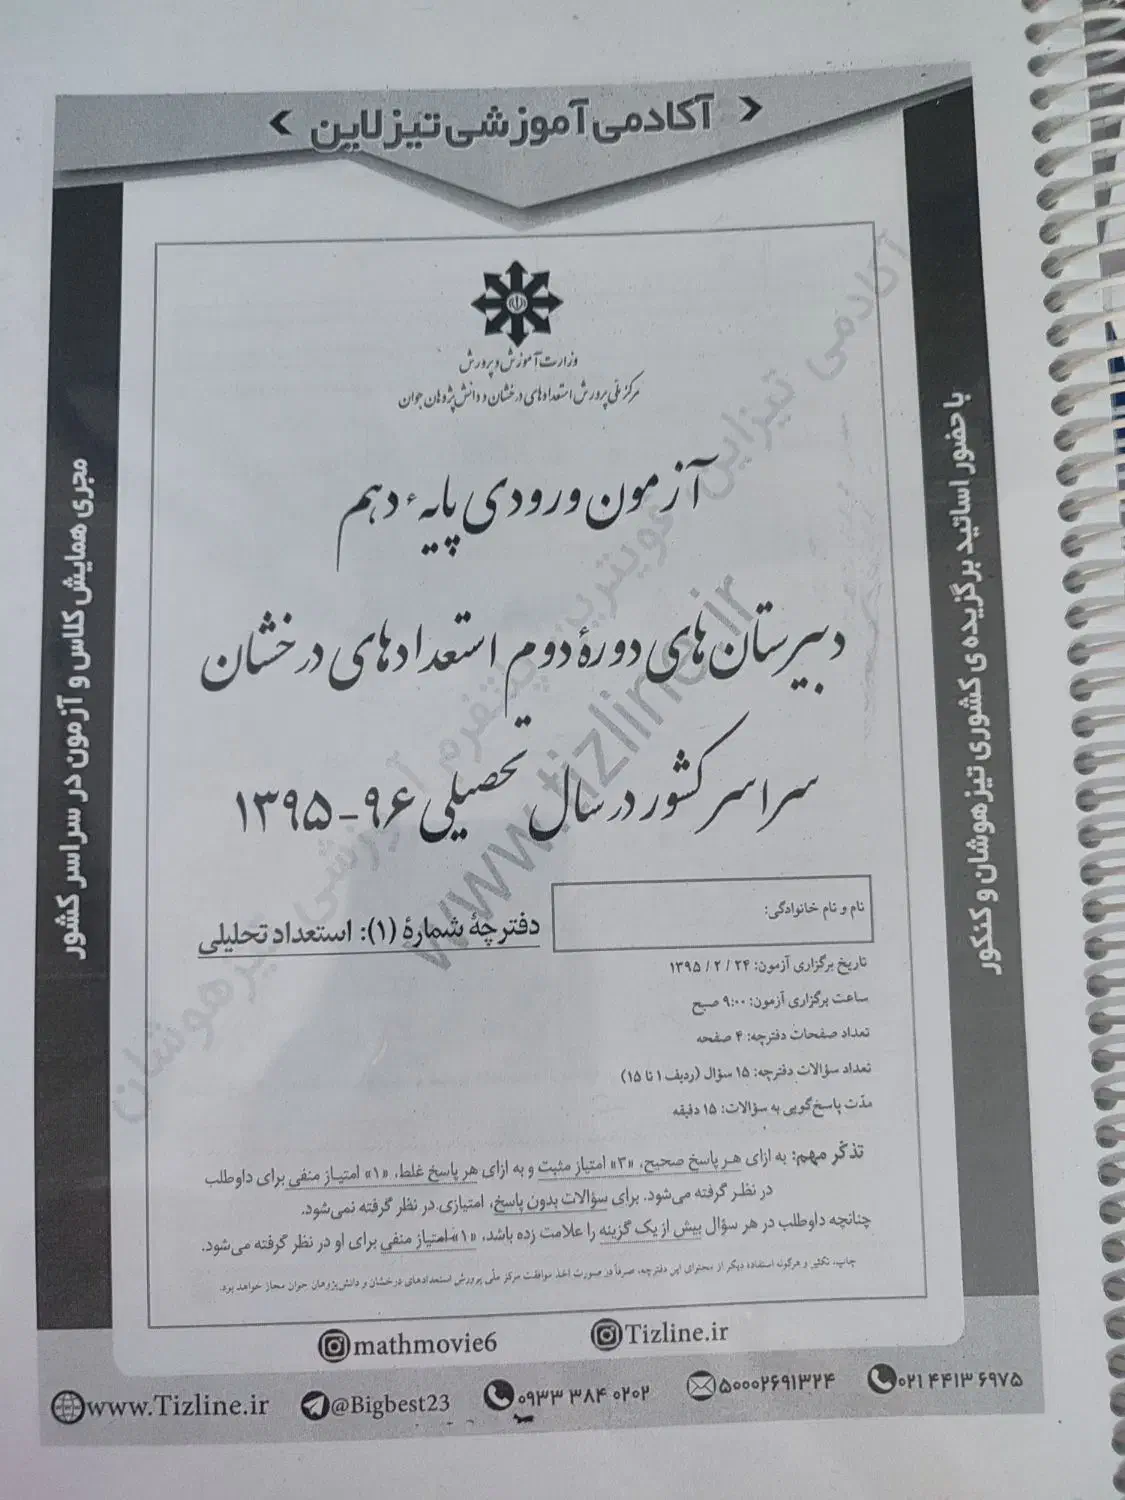 آکادمی آموزشی تیزلاین
وزارت آموزش و پرورش
مرکز ملی پرورش استعدادهای درخشان و دانش‌پژوهان جوان
آزمون ورودی پایهٔ دهم
دبیرستان‌های دورهٔ دوم استعدادهای درخشان
سراسر کشور در سال تحصیلی ۹۶-۱۳۹۵
نام و نام خانوادگی:
دفترچهٔ شمارهٔ (۱): استعداد تحلیلی
تاریخ برگزاری آزمون: ۲۴ / ۲ / ۱۳۹۵
ساعت برگزاری آزمون: ۹:۰۰ صبح
تعداد صفحات دفترچه: ۴ صفحه
تعداد سؤالات دفترچه: ۱۵ سؤال (ردیف ۱ تا ۱۵)
مدّت پاسخ‌گویی به سؤالات: ۱۵ دقیقه
تذکّر مهم: به ازای هر پاسخ صحیح، «۳» امتیاز مثبت و به ازای هر پاسخ غلط، «۱» امتیاز منفی برای داوطلب
در نظر گرفته می‌شود. برای سؤالات بدون پاسخ، امتیازی در نظر گرفته نمی‌شود.
چنانچه داوطلب در هر سؤال بیش از یک گزینه را علامت زده باشد، «۱» امتیاز منفی برای او در نظر گرفته می‌شود.
چاپ، تکثیر و هرگونه استفاده دیگر از محتوای این دفترچه، صرفاً در صورت اخذ موافقت مرکز ملّی پرورش استعدادهای درخشان و دانش‌پژوهان جوان مجاز خواهد بود.
با حضور اساتید برگزیده ی کشوری تیزهوشان و کنکور
مجری همایش کلاس و آزمون در سراسر کشور
آکادمی تیزلاین
آموزشی تیزهوشان
www.tizline.ir
mathmovie6
Tizline.ir
www.Tizline.ir
@Bigbest23
۰۹۳۳ ۳۸۴ ۰۲۰۲
۵۰۰۰۲۶۹۱۳۲۴
۰۲۱ ۴۴۱۳ ۶۹۷۵